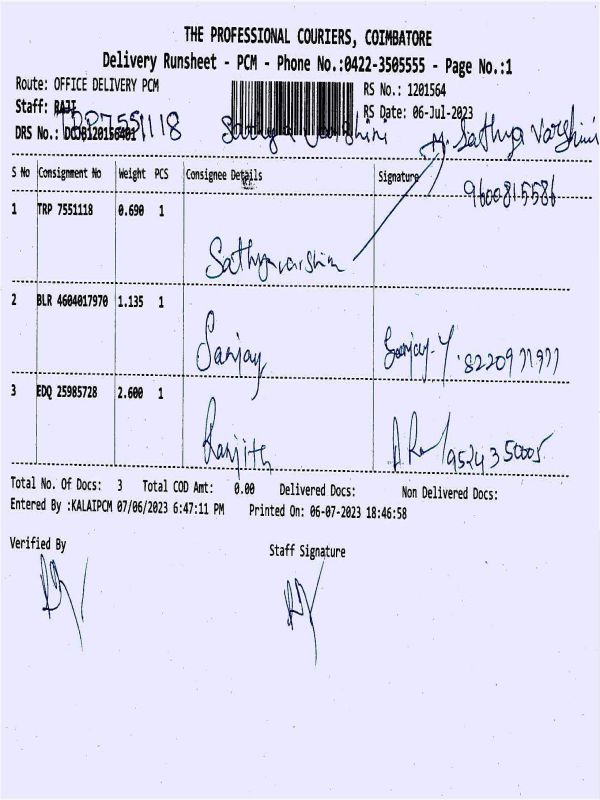 THE PROFESSIONAL COURIERS, COIMBATORE
Delivery Runsheet - PCM - Phone No.:0422-3505555 - Page No.:1
Route: OFFICE DELIVERY PCM RS No.: 1201564
Staff: RAJI RS Date: 06-Jul-2023
7551118 Sathya Varshini M. Sathya Varshini
DRS No.:
9600815586
S No Consignment No Weight PCS Consignee Details Signature
1 TRP 7551118 0.690 1
Sathyavarshini
2 BLR 4604017970 1.135 1
Sanjay Sanjay.Y 8220971977
3 EDQ 25985728 2.600 1
Ranjith 9524350005
Total No. Of Docs: 3 Total COD Amt: 0.00 Delivered Docs: Non Delivered Docs:
Entered By :KALAIPCM 07/06/2023 6:47:11 PM Printed On: 06-07-2023 18:46:58
Verified By Staff Signature